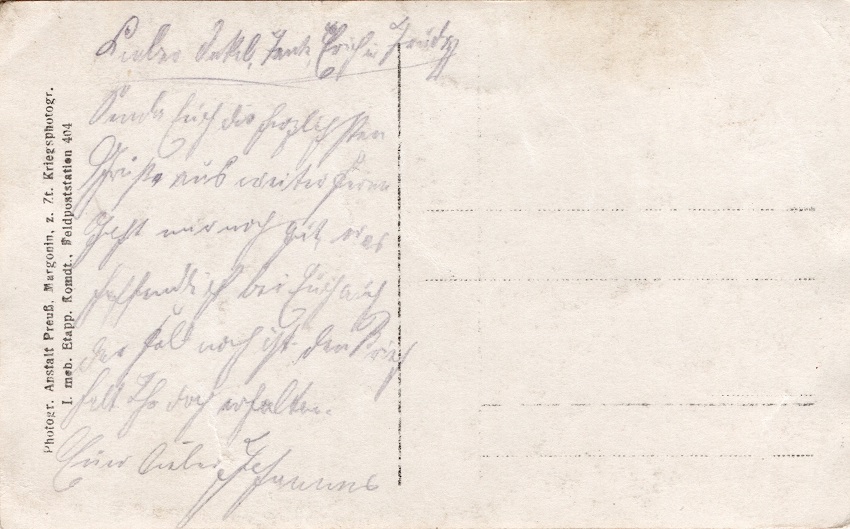 Photogr. Anstalt Preuß, Margonin, z. Zt. Kriegsphotogr.
I. mob. Etapp. Komdt., Feldpoststation 404
Lieber Onkel, Tante, Erich u. Trudy
Sende Euch die herzlichsten
Grüße aus weiter Ferne
Geht mir noch gut, was
hoffentlich bei Euch auch
der Fall noch ist. Den Brief
habt Ihr doch erhalten.
Euer lieber Johannes